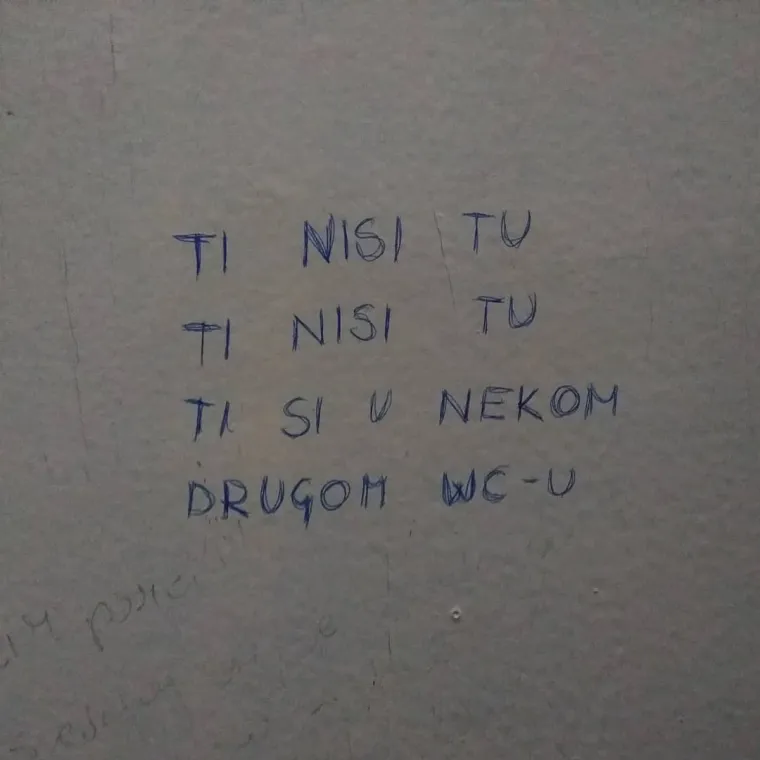 TI NISI TU
TI NISI TU
TI SI U NEKOM
DRUGOM WC-U